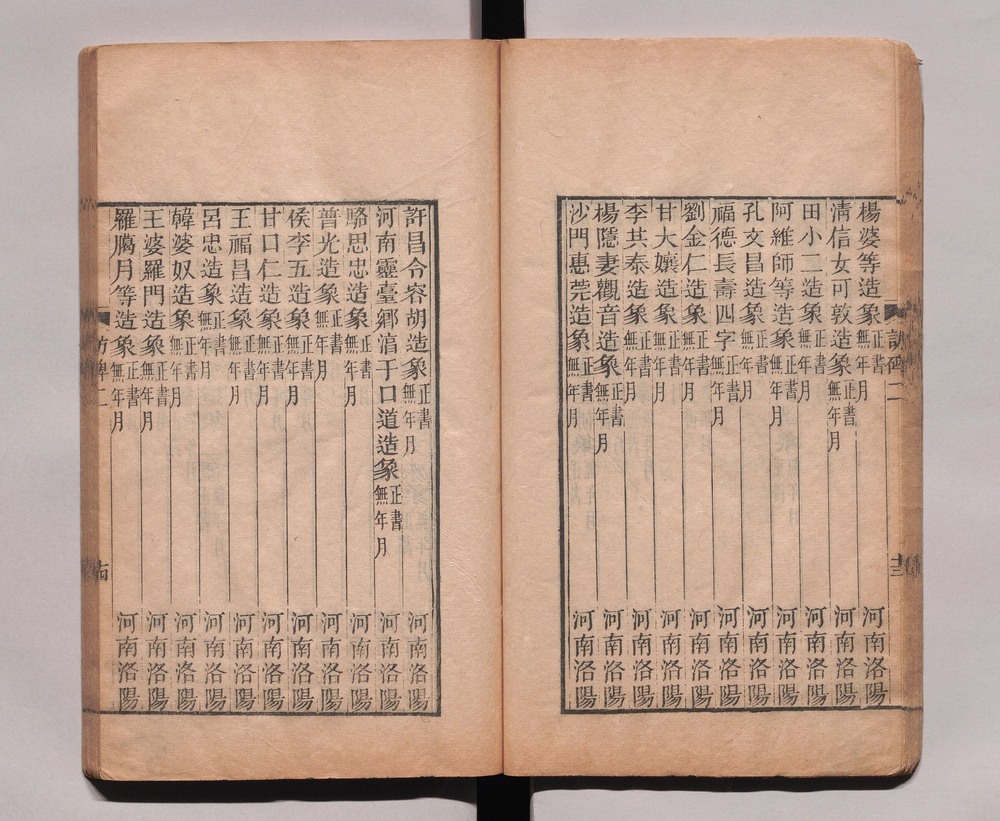 楊婆等造象正書無年月 河南洛陽
清信女可敦造象正書無年月 河南洛陽
田小二造象正書無年月 河南洛陽
阿維師等造象正書無年月 河南洛陽
孔文昌造象正書無年月 河南洛陽
福德長壽四字正書無年月 河南洛陽
劉金仁造象正書無年月 河南洛陽
甘大孃造象正書無年月 河南洛陽
李共泰造象正書無年月 河南洛陽
楊隱妻觀音造象正書無年月 河南洛陽
沙門惠莞造象正書無年月 河南洛陽
許昌令容胡造象正書無年月 河南洛陽
河南靈臺鄉涫于口道造象正書無年月 河南洛陽
駱思忠造象正書無年月 河南洛陽
普光造象正書無年月 河南洛陽
侯李五造象正書無年月 河南洛陽
甘口仁造象正書無年月 河南洛陽
王福昌造象正書無年月 河南洛陽
呂忠造象正書無年月 河南洛陽
韓婆奴造象正書無年月 河南洛陽
王婆羅門造象正書無年月 河南洛陽
羅臈月等造象正書無年月 河南洛陽